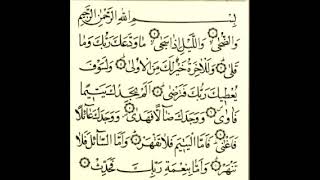 بِسْمِ اللهِ الرَّحْمٰنِ الرَّحِيْمِ
وَالضُّحٰى ۝ وَالَّيْلِ اِذَا سَجٰى ۝ مَا وَدَّعَكَ رَبُّكَ وَمَا
قَلٰى ۝ وَلَلْاٰخِرَةُ خَيْرٌ لَّكَ مِنَ الْاُوْلٰى ۝ وَلَسَوْفَ
يُعْطِيْكَ رَبُّكَ فَتَرْضٰى ۝ اَلَمْ يَجِدْكَ يَتِيْمًا
فَاٰوٰى ۝ وَوَجَدَكَ ضَآلًّا فَهَدٰى ۝ وَوَجَدَكَ عَآئِلًا
فَاَغْنٰى ۝ فَاَمَّا الْيَتِيْمَ فَلَا تَقْهَرْ ۝ وَاَمَّا السَّآئِلَ فَلَا
تَنْهَرْ ۝ وَاَمَّا بِنِعْمَةِ رَبِّكَ فَحَدِّثْ ۝